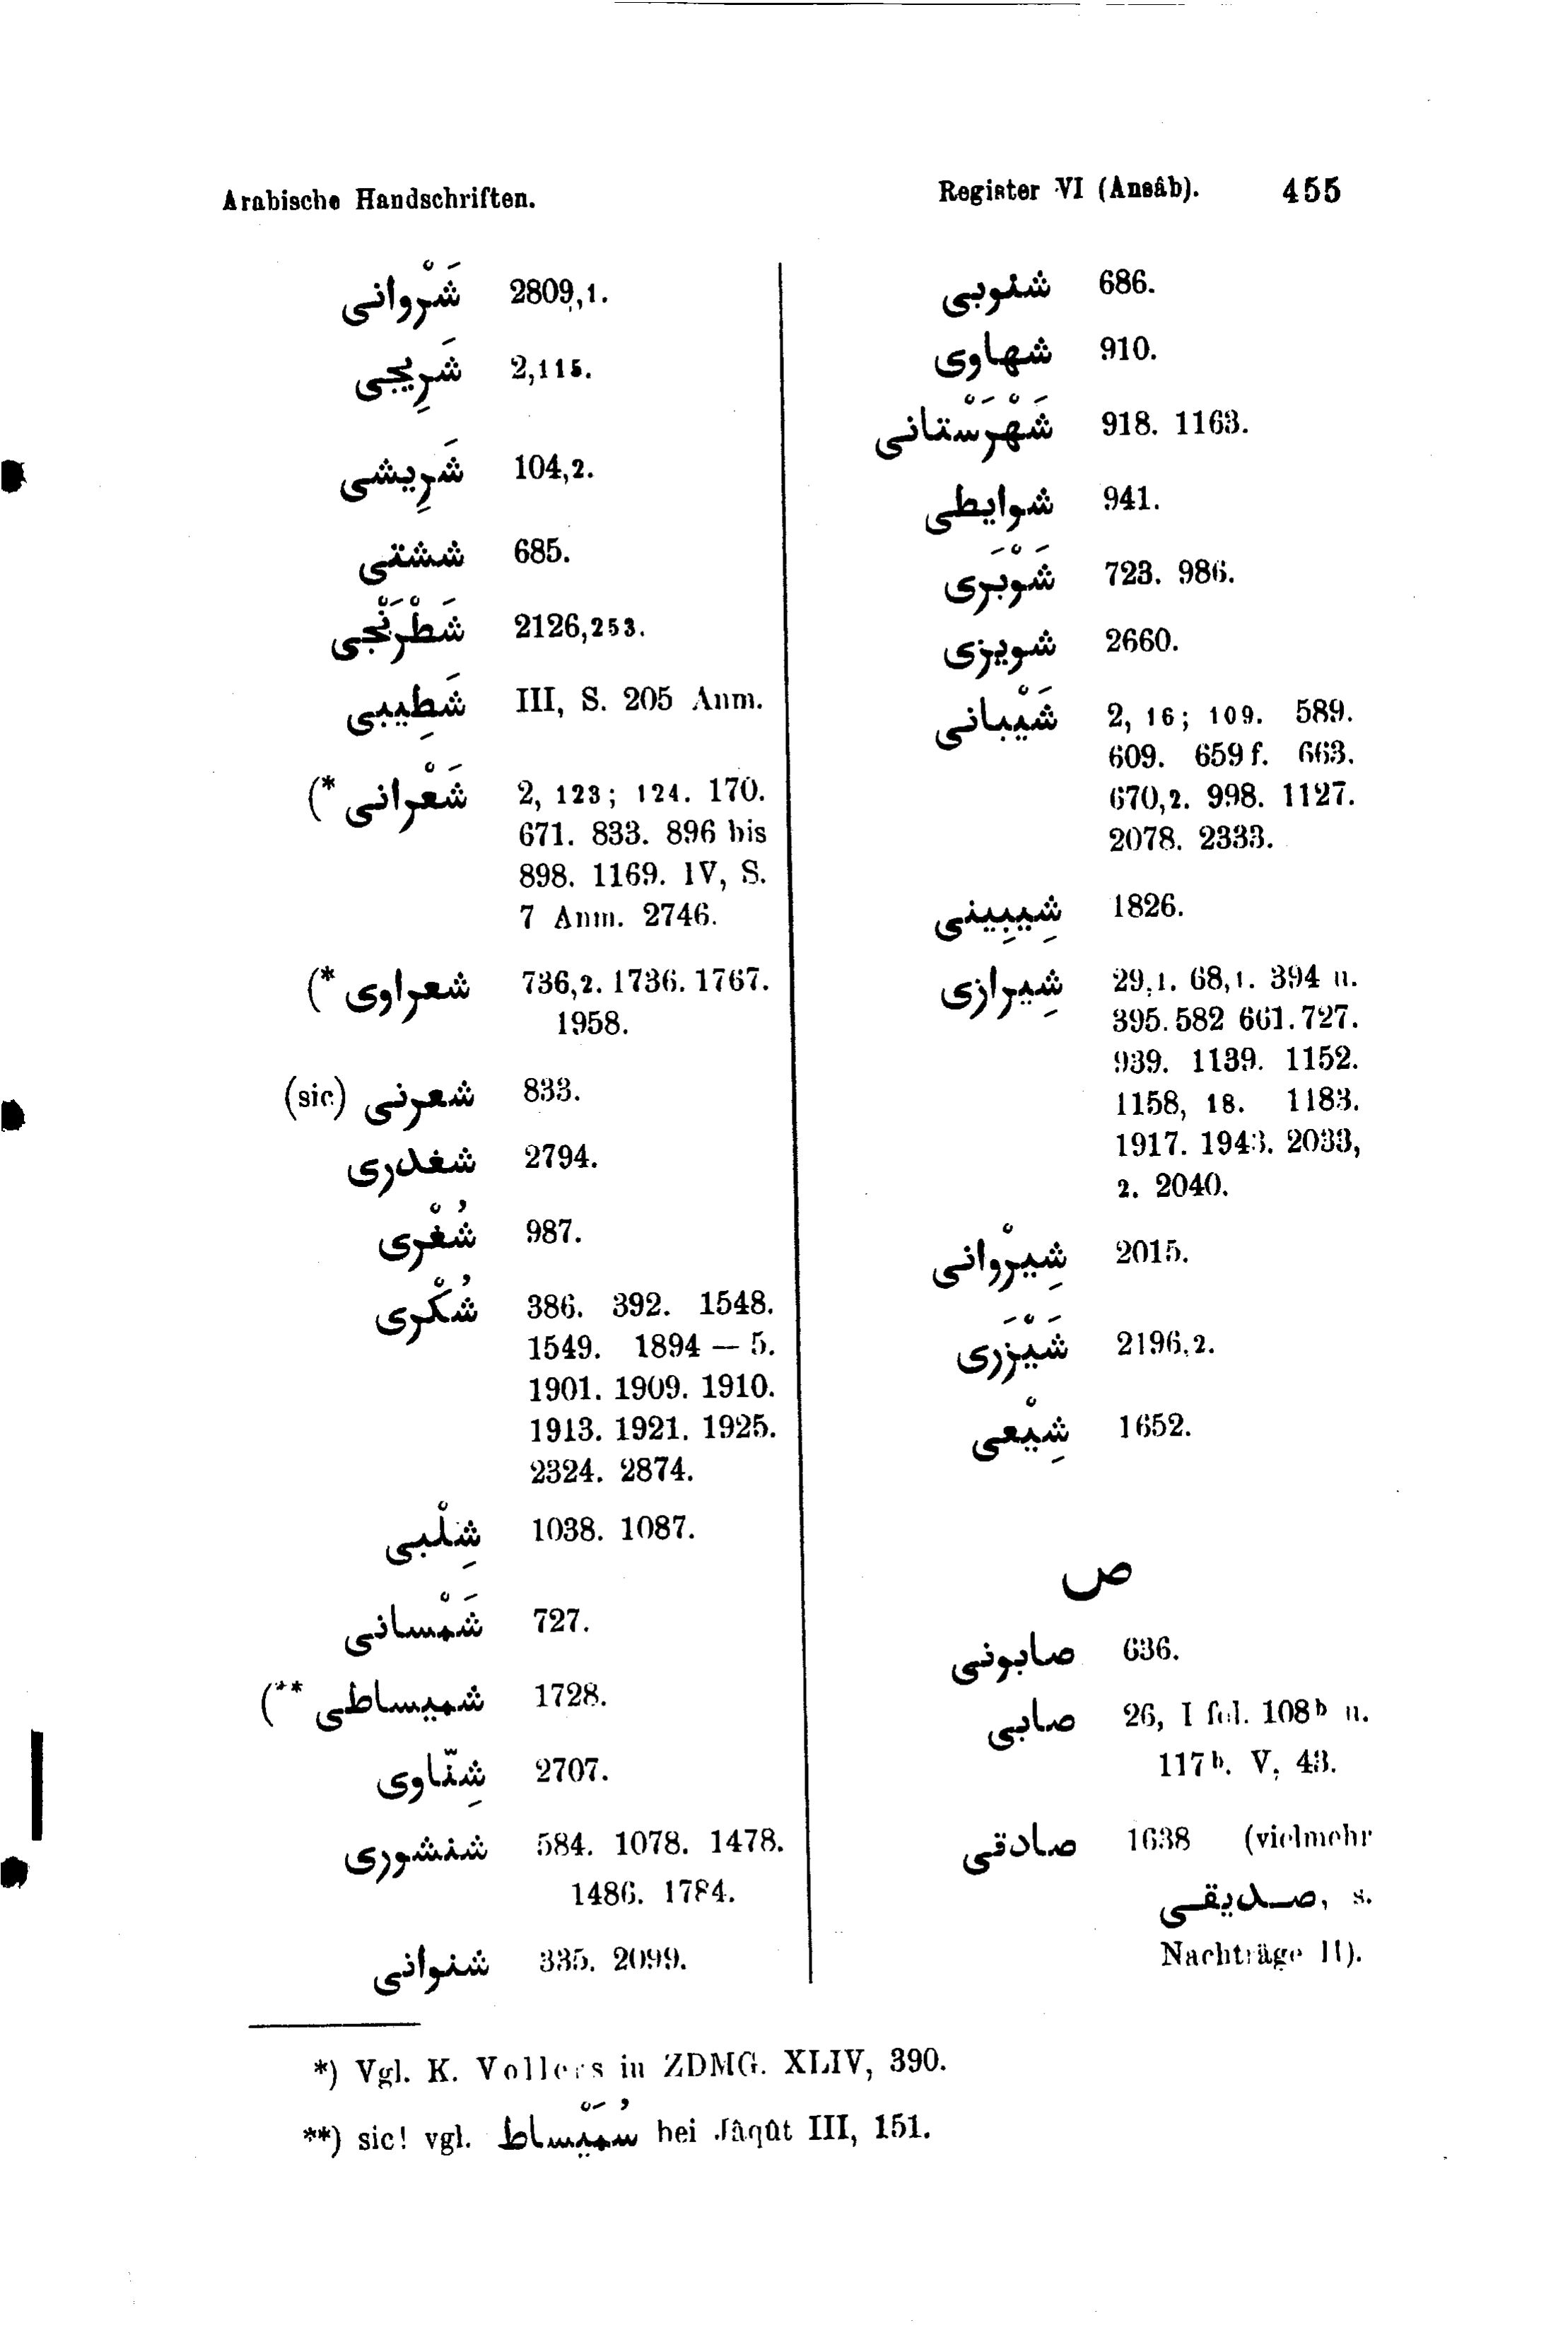 Arabische Handschriften. Register VI (Ansâb). 455
شَرْوانى 2809,1.
شَرِيجى 2,115.
شَرِيشى 104,2.
ششتى 685.
شَطْرَنْجى 2126,253.
شَطِيبى III, S. 205 Anm.
شَعْرانى *) 2, 123; 124. 170.
671. 833. 896 bis
898. 1169. IV, S.
7 Anm. 2746.
شعراوى *) 736,2. 1736. 1767.
1958.
شعرنى (sic) 833.
شغدرى 2794.
شُغْرى 987.
شُكْرى 386. 392. 1548.
1549. 1894 — 5.
1901. 1909. 1910.
1913. 1921. 1925.
2324. 2874.
شِلْبى 1038. 1087.
شَمْسانى 727.
شميساطى **) 1728.
شِنّاوى 2707.
شنشورى 584. 1078. 1478.
1486. 1784.
شنوانى 335. 2099.
شنوبى 686.
شهاوى 910.
شَهْرَسْتانى 918. 1163.
شوايطى 941.
شَوْبَرى 723. 986.
شويزى 2660.
شَيْبانى 2, 16; 109. 589.
609. 659 f. 663.
670,2. 998. 1127.
2078. 2333.
شِيبِينى 1826.
شِيرازى 29,1. 68,1. 394 u.
395. 582 661. 727.
939. 1139. 1152.
1158, 18. 1183.
1917. 1943. 2033,
2. 2040.
شِيرْوانى 2015.
شَيْزَرى 2196,2.
شِيْعى 1652.
ص
صابونى 636.
صابى 26, I fol. 108ᵇ u.
117ᵇ. V, 43.
صادقى 1638 (vielmehr
صديقى, s.
Nachträge II).
*) Vgl. K. Vollers in ZDMG. XLIV, 390.
**) sic! vgl. سُمَيْساط bei Jâqût III, 151.